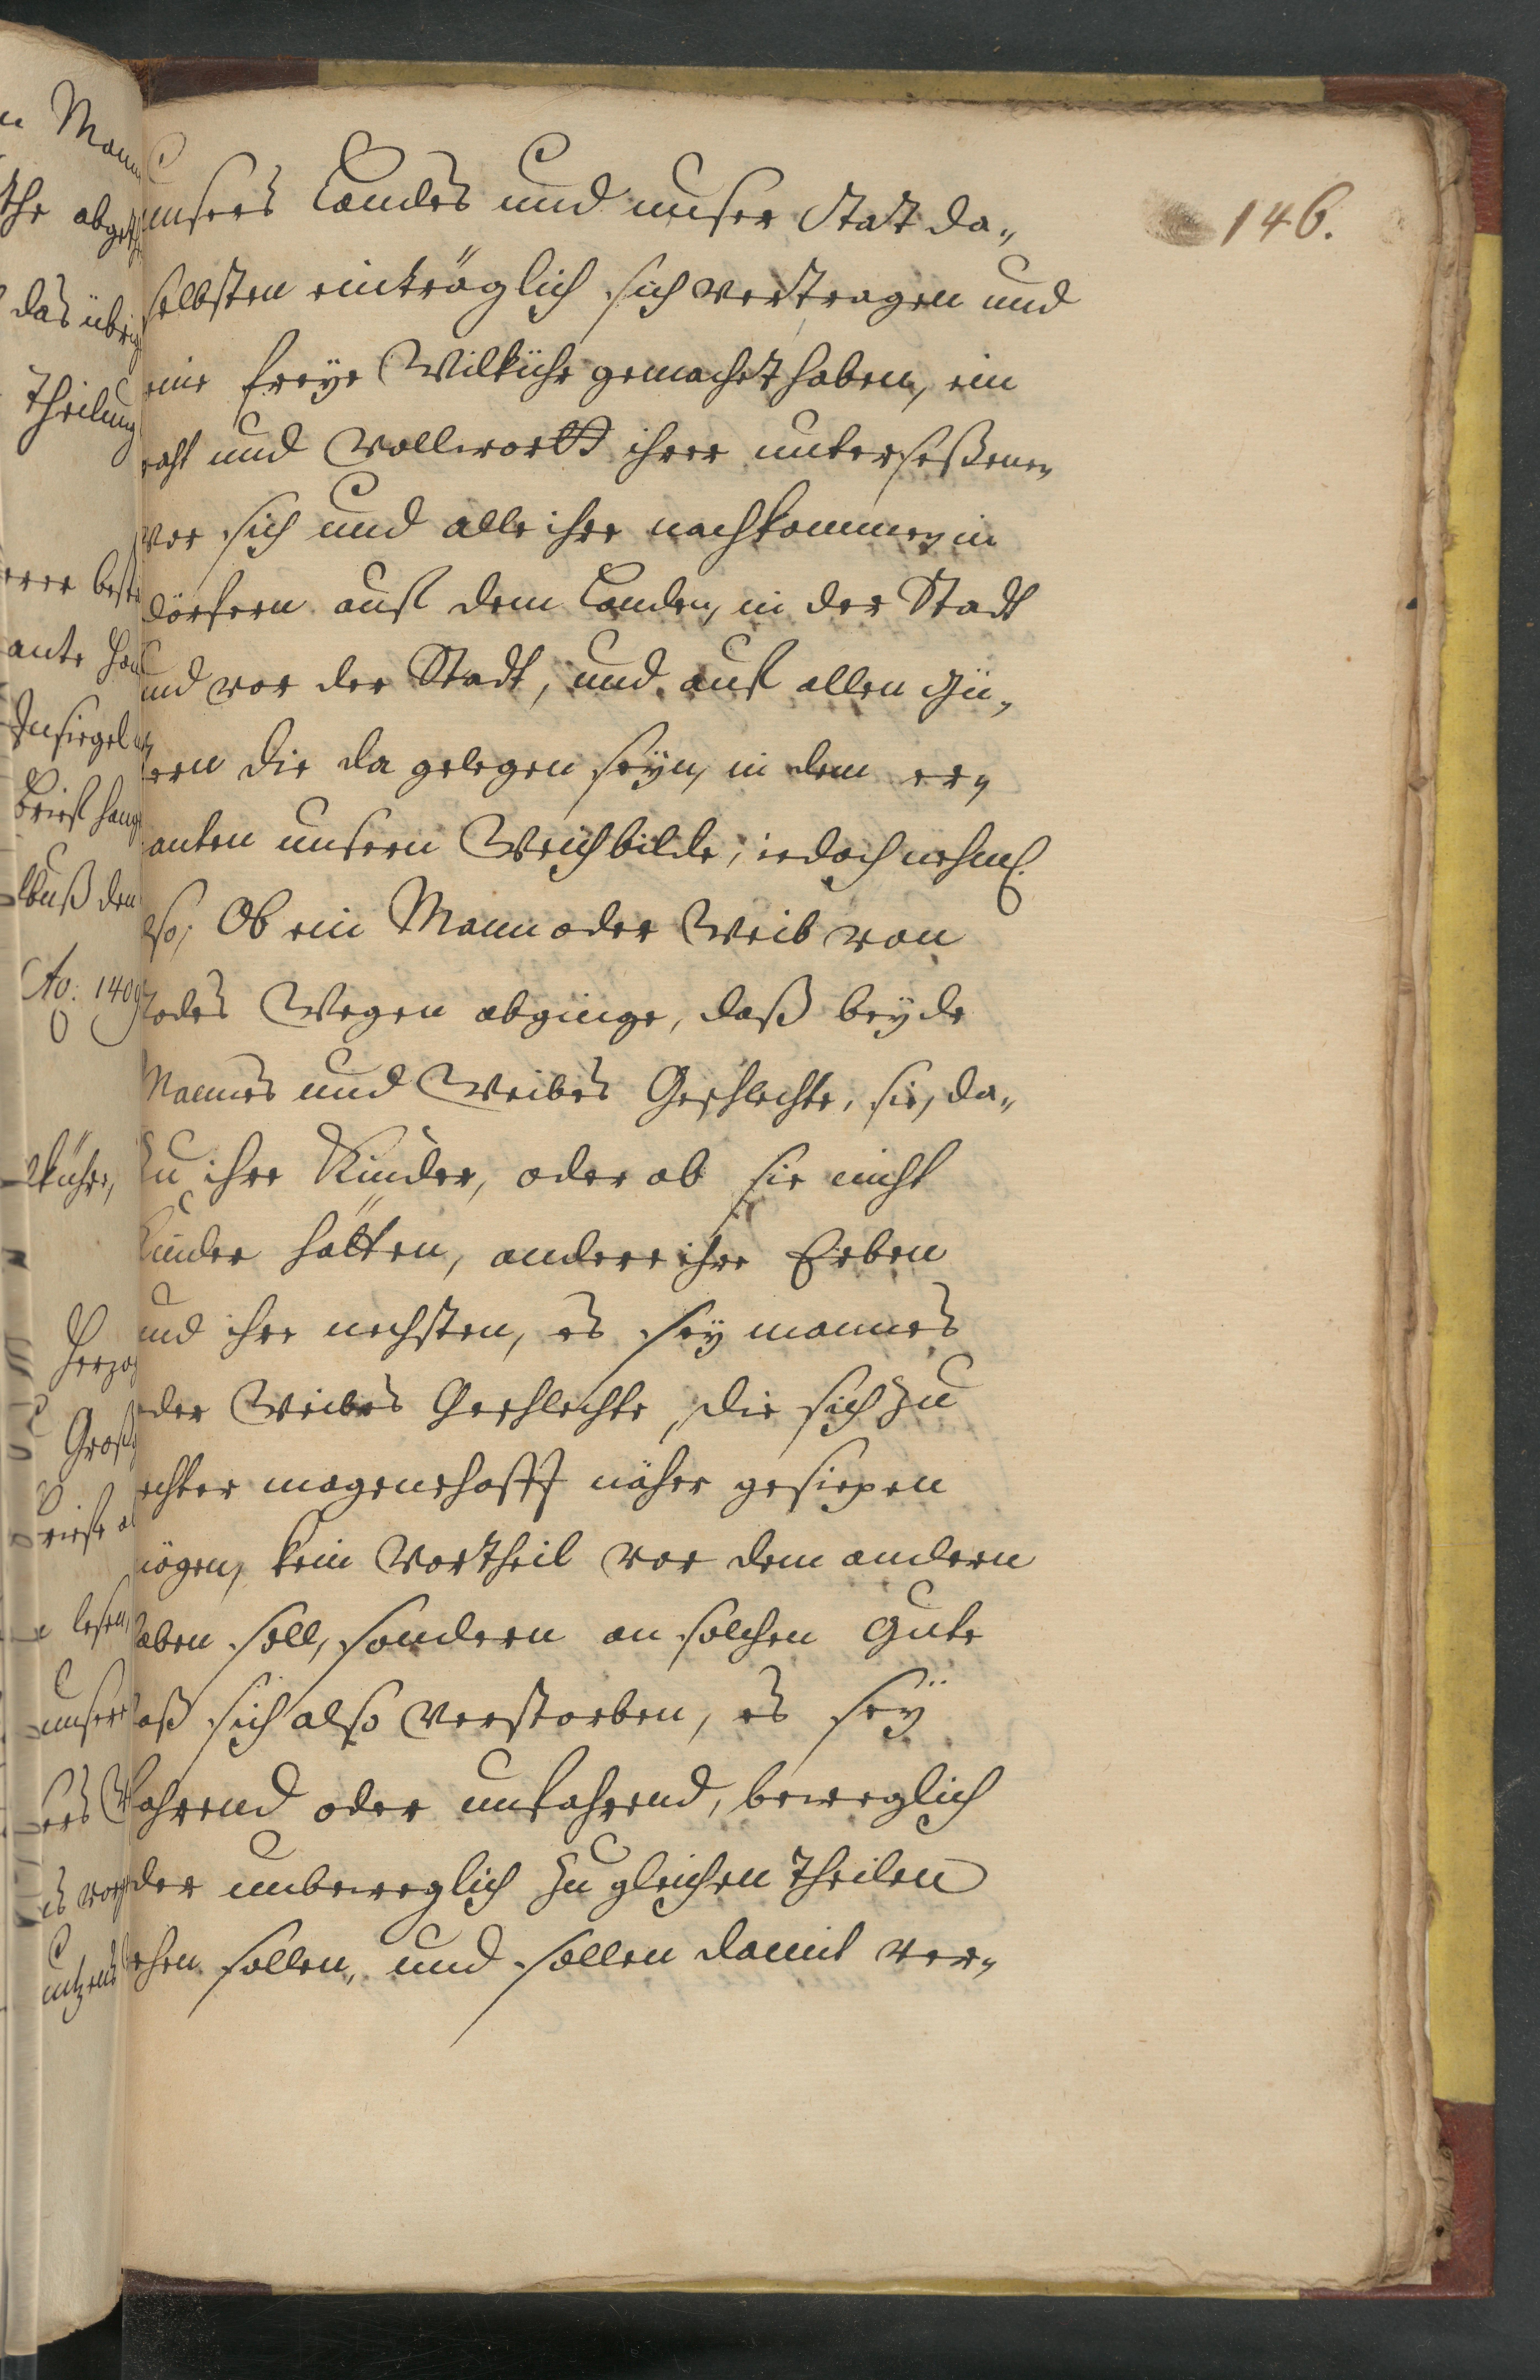 146.
unsers Landes und unser Stat da„
selbsten einträglich sich vertragen und
eine freÿe Wilkühr gemachet haben, ein
raht und Vollwortt ihrer untersessenen,
vor sich und alle ihre nachkommen, in
dörfern auf dem Lande, in der Stadt
und vor der Stadt, und auf allen Gü„
ern die da gelegen seÿn, in dem er„
anten unsern Weichbilde, iedoch nehml.
lso, Ob ein Mann oder Weib von
Todes Wegen abginge, daß beÿde
Mannes und Weibes Geschlechte, sie, da„
zu ihre Kinder, oder ob sie nicht
Kinder hätten, andere ihre Erben
und ihre nechsten, es seÿ mannes
oder Weibes Geschlechte, die sich zu
echter magenschafft näher gesiepen
mögen, kein Vortheil vor dem andern
haben soll, sondern an solchen Gute
daß sich also verstorben, es seÿ
fahrend oder unfahrend, beweglich
oder unbeweglich zu gleichen Theilen
ehen sollen, und sollen damit ver„